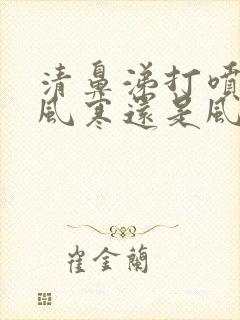 清鼻涕打噴
風寒還是風
崔金蘭